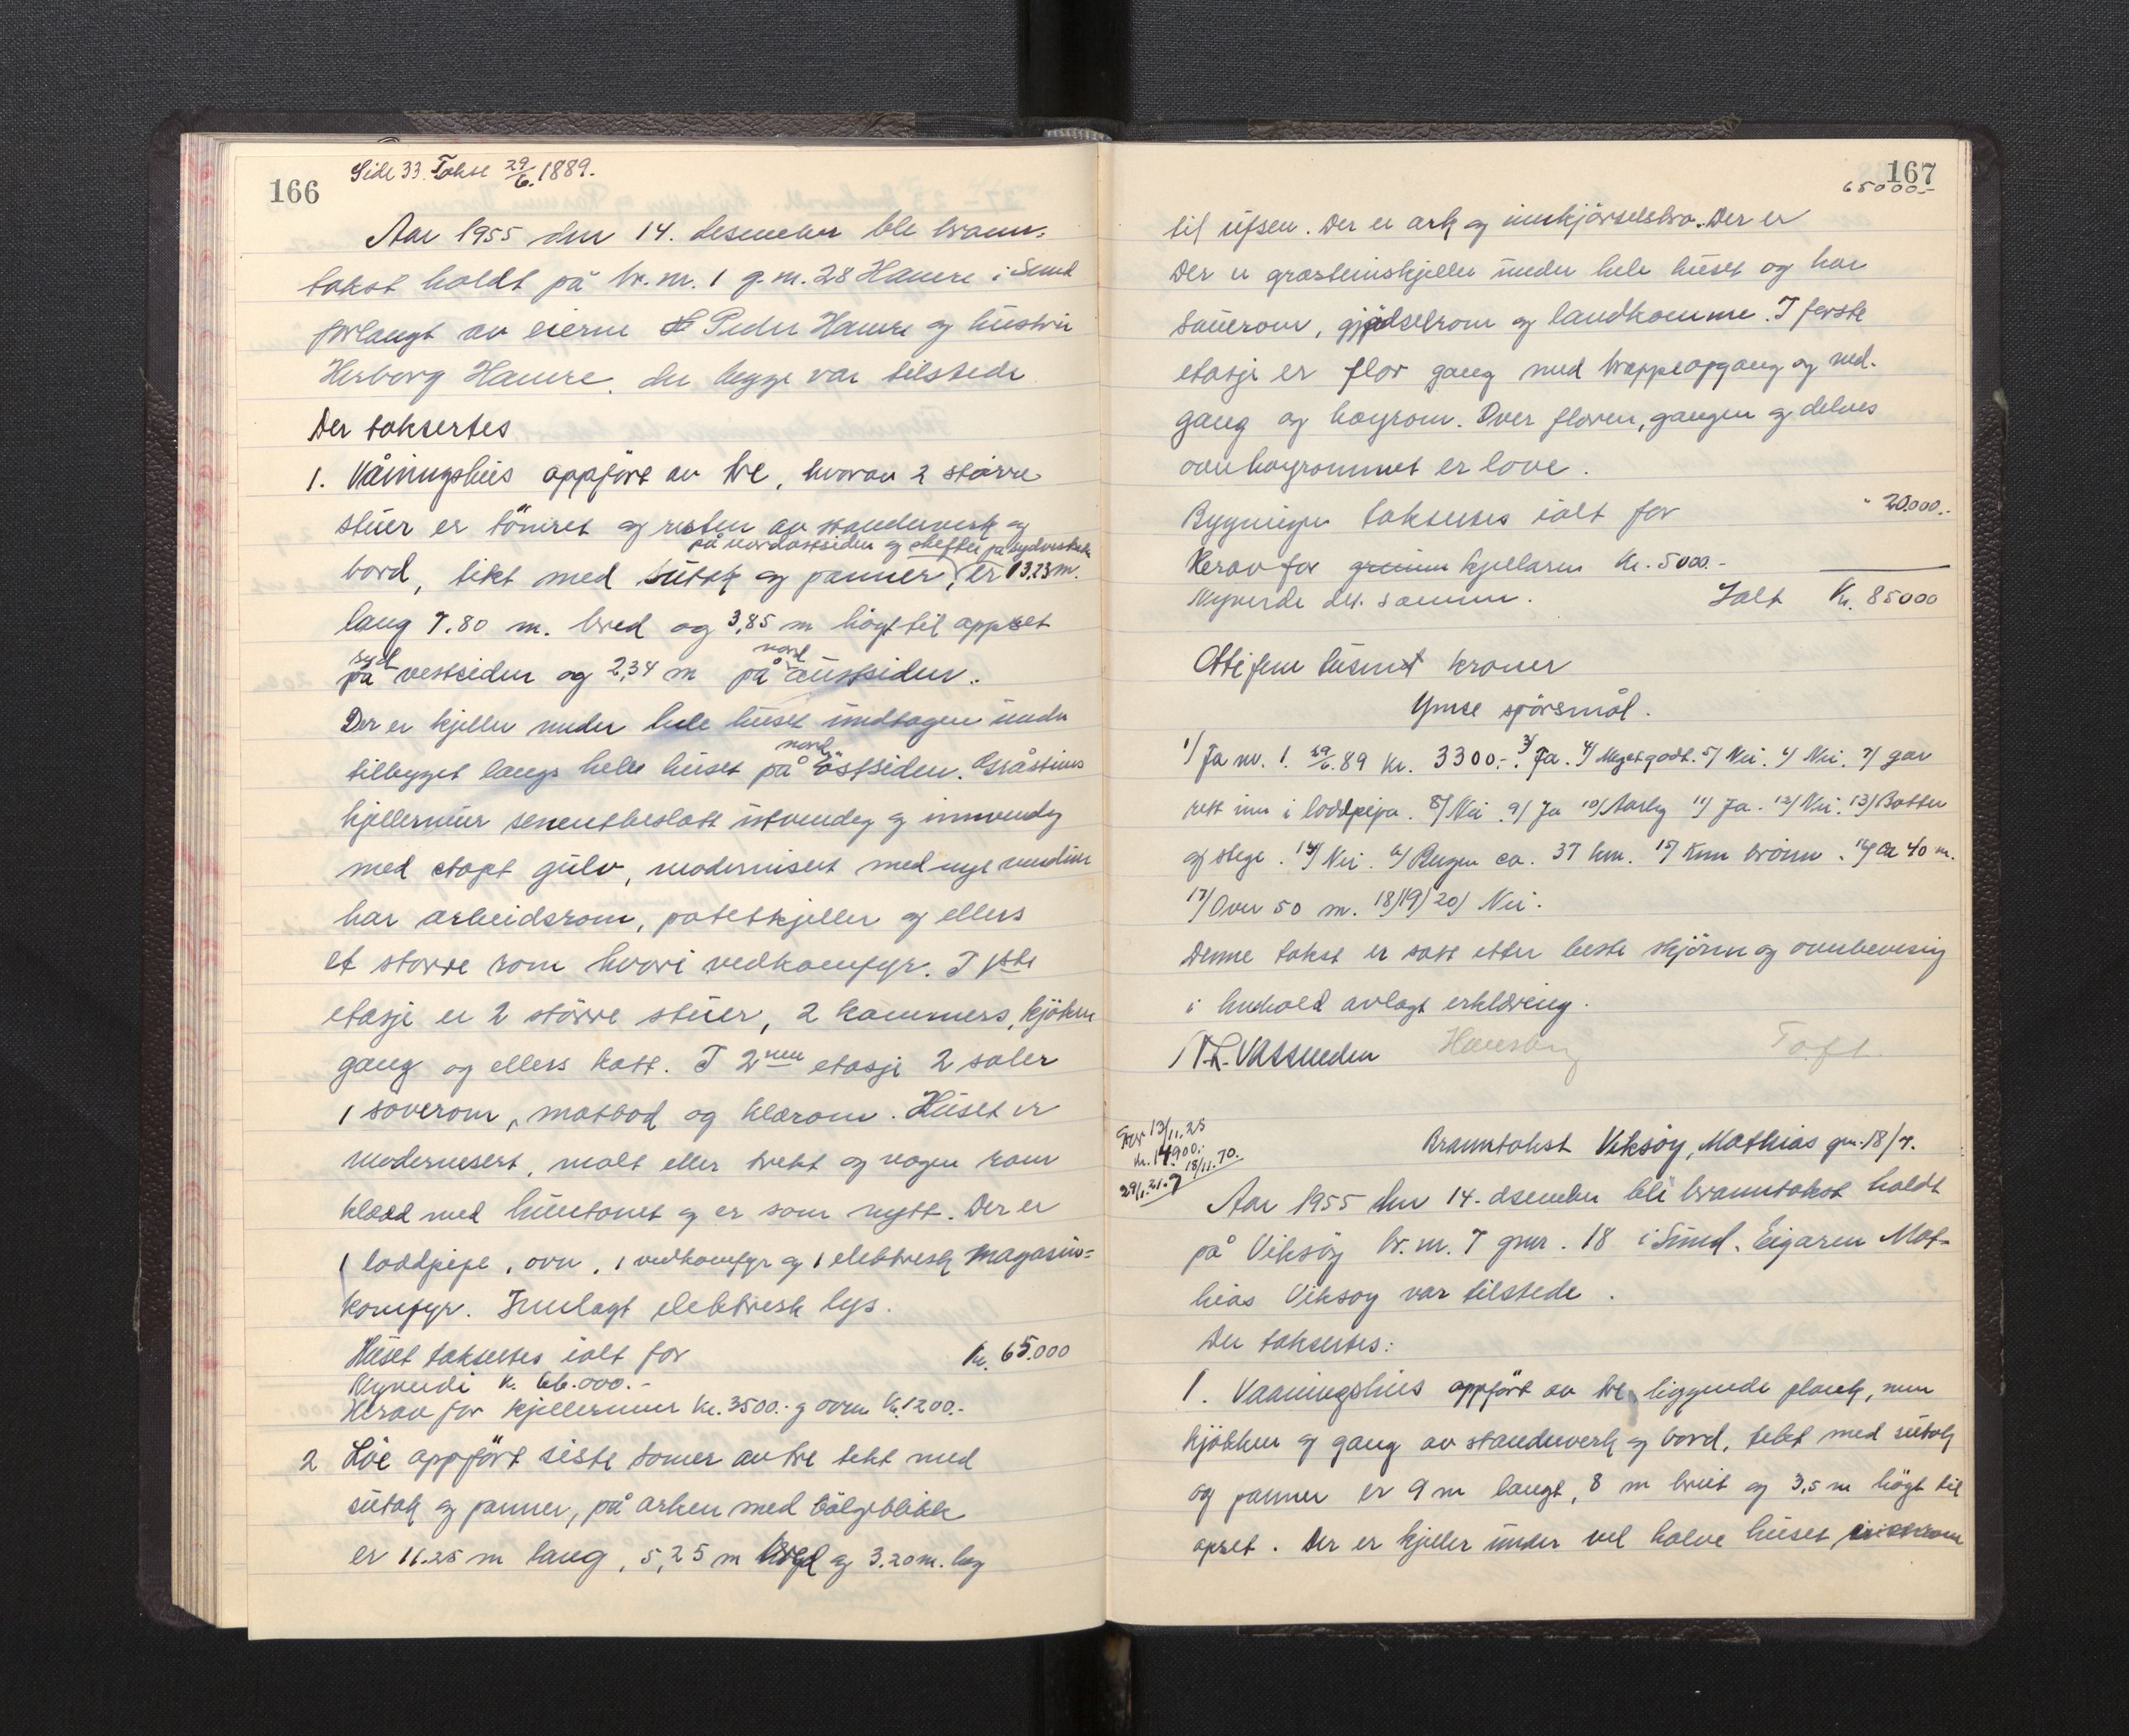 166
Side 33. Takse 29/6. 1889.
Aar 1955 den 14. desember ble brann-
takst holdt på br. nr. 1 g.nr. 28 Hamre i Sund
forlangt av eierne Peder Hamre og hustru
Herborg Hamre. der begge var tilstede
Der taksertes
1. Våningshus oppført av tre, hvorav 2 større
stuer er tömret og resten av standerverk og
på nordostsiden og skefter på sydvestside
bord, tekt med sutak og panner, er 13,23 m.
lang 7.80 m. bred og 3,85 m högt til oppset
syd nord
på vestsiden og 2,34 m på austsiden.
Der er kjeller under hele huset undtagen under
nord
tilbygget langs hele huset på östsiden. Gråsteins
kjellermur sementbeslått utvendig og innvendig
med støpt gulv, modernisert med nye vinduer
har arbeidsrom, potetkjeller og ellers
et storre rom hvori vedkomfyr. I 1ste
etasje er 2 större stuer, 2 kammers, kjöken
gang og ellers kott. I 2nen etasje 2 saler
1 soverom, matbod og klærom. Huset er
modernisert, malt eller trekt og nogen rom
kledd med huntonit og er som nytt. Der er
1 loddpipe, ovn, 1 vedkomfyr og 1 elektrisk magasin-
komfyr. Innlagt elektrisk lys.
Huset taksertes ialt for Kr. 65.000
Nyverdi kr. 66.000.-
Herav for kjellermur kr. 3500.- og ovn kr. 1200.-
2 Löe oppfört siste somer av tre tekt med
sutak og panner, på arken med bölgeblikk
er 16.25 m lang, 5,25 m bred og 3.20 m. høg
167
65000.-
til ufsen. Der er ark og innkjörselsbro. Der er
Der er grasteinskjeller under hele huset og har
sauerom, gjødselrom og landkomme. I forste
etasje er flor gang med trappeopgang og ned-
gang og høyrom. Over floren, gangen og delves
over høyrommet er love.
Bygningen taksertes ialt for " 20.000.-
Herav for grunn kjellaren kr. 5000.-
Nyverde det. samme. Ialt Kr. 85000
Ottifem tusend kroner
Ymse spörsmål.
1/ Ja nr. 1. 29/6.89 kr. 3300.-. 3/ Ja. 4/ Meget godt. 5/ Nei. 6/ Nei. 7/ går
rett inn i loddpipa. 8/ Nei. 9/ Ja 10/ Aarlig 11/ Ja. 12/ Nei. 13/ Bøtter
og stege. 14/ Nei. 6/ Bergen ca. 37 km. 15/ Kun brönn. 16/ ca 40 m.
17/ Over 50 m. 18/19/20/ Nei.
Denne takst er satt etter beste skjönn og overbevising
i henhold avlagt erklæring.
N.L. Vassenden Hausberg Toft
13/11.25
Kr. 14900.-
18/11.70.
29/1.21.7
Branntakst Viksöy, Mathias gnr. 18/7.
Aar 1955 den 14. desember blei branntakst holdt
på Viksöy br. nr. 7 gnr. 18 i Sund. Eigaren Mat-
hias Viksøy var tilstede.
Der taksertes:
1. Vaaningshus oppfört av tre, liggende plank, men
kjökken og gang av standerverk og bord, tekt med sutak
og panner er 9 m langt, 8 m breit og 3,5 m högt til
opset. Der er kjeller under vel halve huset